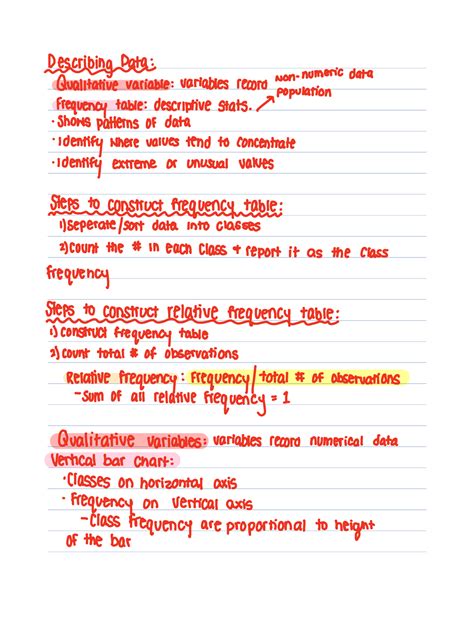 Describing Data:
Qualitative variable: variables record non-numeric data
Frequency table: descriptive stats. → population
• Shows patterns of data
• Identify where values tend to concentrate
• Identify extreme or unusual values
Steps to construct frequency table:
1) seperate/sort data into classes
2) count the # in each class & report it as the class
frequency
Steps to construct relative frequency table:
1) construct frequency table
2) count total # of observations
Relative frequency: frequency/total # of observations
- Sum of all relative frequency = 1
Qualitative variables: variables record numerical data
Vertical bar chart:
• Classes on horizontal axis
• Frequency on vertical axis
- Class frequency are proportional to height
of the bar